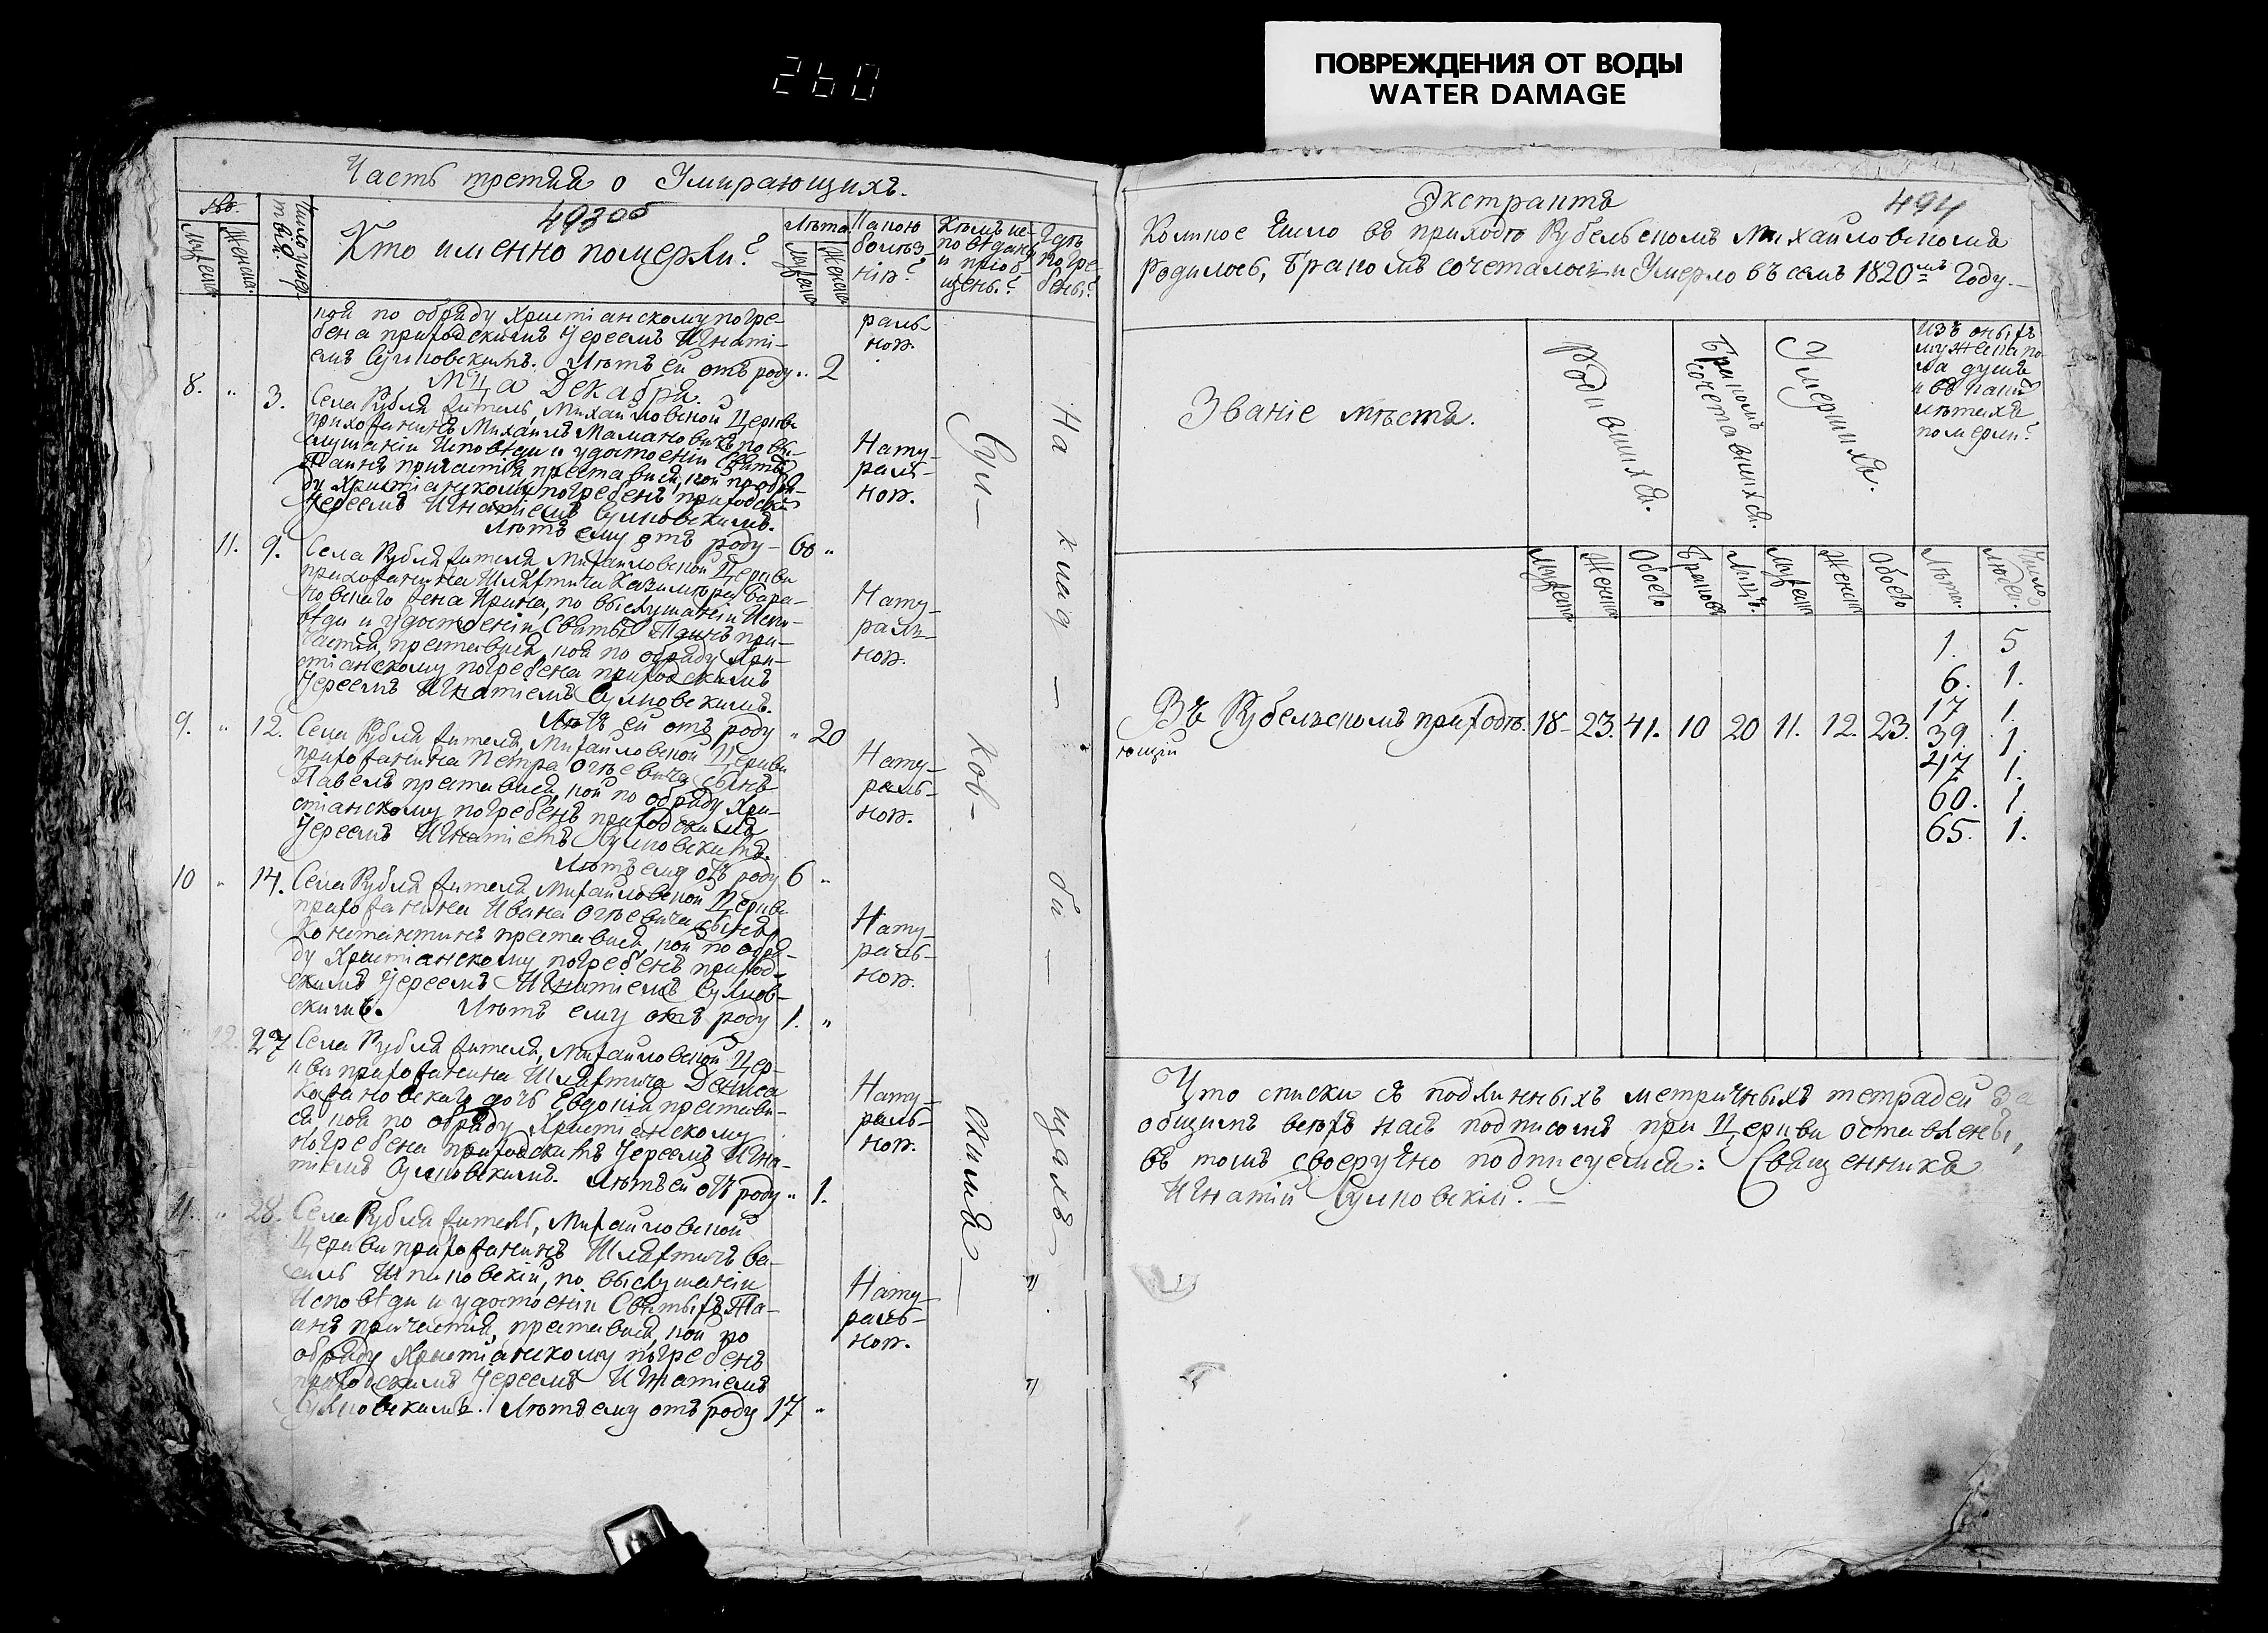 260
ПОВРЕЖДЕНИЯ ОТ ВОДЫ
WATER DAMAGE
Часть третая о Умирающихъ.
493об
Мужеска
Женска
Число умер
Кто именно померли?
Лѣта
Мужеска
Женска
Какою
болѣз-
нію?
Кѣмъ ис-
повѣданы
и пріоб-
щены?
Гдѣ
погре-
бены?
кой по обряду Христіанскому погре-
бена приходскимъ Іереемъ Игнаті-
емъ Сулковскимъ. Лѣтъ ей отъ роду .. 2
раль-
ною.
Мца Декабря.
8. „ 3. Села Рубля житель, Михайловской Церкви
прихожанинъ Михаилъ Мамановичъ по вы-
слушаніи Исповѣди и удостоеніи Святыхъ
Таинъ причастія преставися, кой по обря-
ду Христіанскому погребенъ приходскимъ
Іереемъ Игнатіемъ Сулковскимъ.
Лѣтъ ему отъ роду - 60 „
Нату-
раль-
ною.
11. 9. Села Рубля жителя Михайловской Церкви
прихожанина Шляхтича Казимира Бара-
новскаго жена Ирина, по выслушаніи Испо-
вѣди и удостоеніи Святыхъ Таинъ при-
частія, преставися, коя по обряду Хри-
стіанскому погребена приходскимъ
Іереемъ Игнатіемъ Сулковскимъ.
Лѣтъ ей отъ роду „ 20
Нату-
раль-
ною.
9. „ 12. Села Рубля жителя, Михайловской Церкви
прихожанина Петра сынъ
Павелъ преставися, кой по обряду Хри-
стіанскому погребенъ приходскимъ
Іереемъ Игнатіемъ Сулковскимъ.
Лѣтъ ему отъ роду 6 „
Нату-
раль-
ною.
10 „ 14. Села Рубля жителя, Михайловской Церкви
прихожанина Ивана сынъ
Константинъ преставися, кой по обря-
ду Христіанскому погребенъ приход-
скимъ Іереемъ Игнатіемъ Сулков-
скимъ. Лѣтъ ему отъ роду 1. „
Нату-
раль-
ною.
12. 27 Села Рубля жителя, Михайловской Цер-
кви прихожанина Шляхтича Дениса
дочь Евдокія престави-
ся, коя по обряду Христіанскому
погребена приходскимъ Іереемъ Игна-
тіемъ Сулковскимъ. Лѣтъ ей отъ роду „ 1.
Нату-
раль-
ною.
11. „ 28. Села Рубля житель, Михайловской
Церкви прихожанинъ Шляхтичъ Ва-
силь Шпаковскій, по выслушаніи
Исповѣди и удостоеніи Святыхъ Та-
инъ причастія, преставися, кой по
обряду Христіанскому погребенъ
приходскимъ Іереемъ Игнатіемъ
Сулковскимъ. Лѣтъ ему отъ роду 17 „
Нату-
раль-
ною.
Сул-
ков-
скимъ
На клад-
би-
щахъ
Экстрактъ
494
Коликое число въ приходѣ Рубельскомъ Михайловскомъ
родилось, бракомъ сочеталось и умерло въ семъ 1820мъ году.
Званіе мѣста.
Родившихся.
Бракомъ
сочетавшихся.
Умершихъ.
Изъ оныхъ
мужеска по-
ла душъ
и въ какихъ
лѣтахъ
померли?
Мужеска
Женска
Обоего
Браковъ
Лицъ.
Мужеска
Женска
Обоего
Лѣта.
Число
людей.
Въ Рубельскомъ приходѣ. 18 23. 41. 10 20 11. 12. 23.
ющій
1. 5
6. 1.
17 1.
39. 1.
47 1.
60. 1.
65. 1.
Что списки съ подлинныхъ метричныхъ тетрадей за
общимъ всѣхъ насъ подписомъ при Церкви оставлены,
въ томъ своеручно подписуемся: Священникъ
Игнатій Сулковскій.